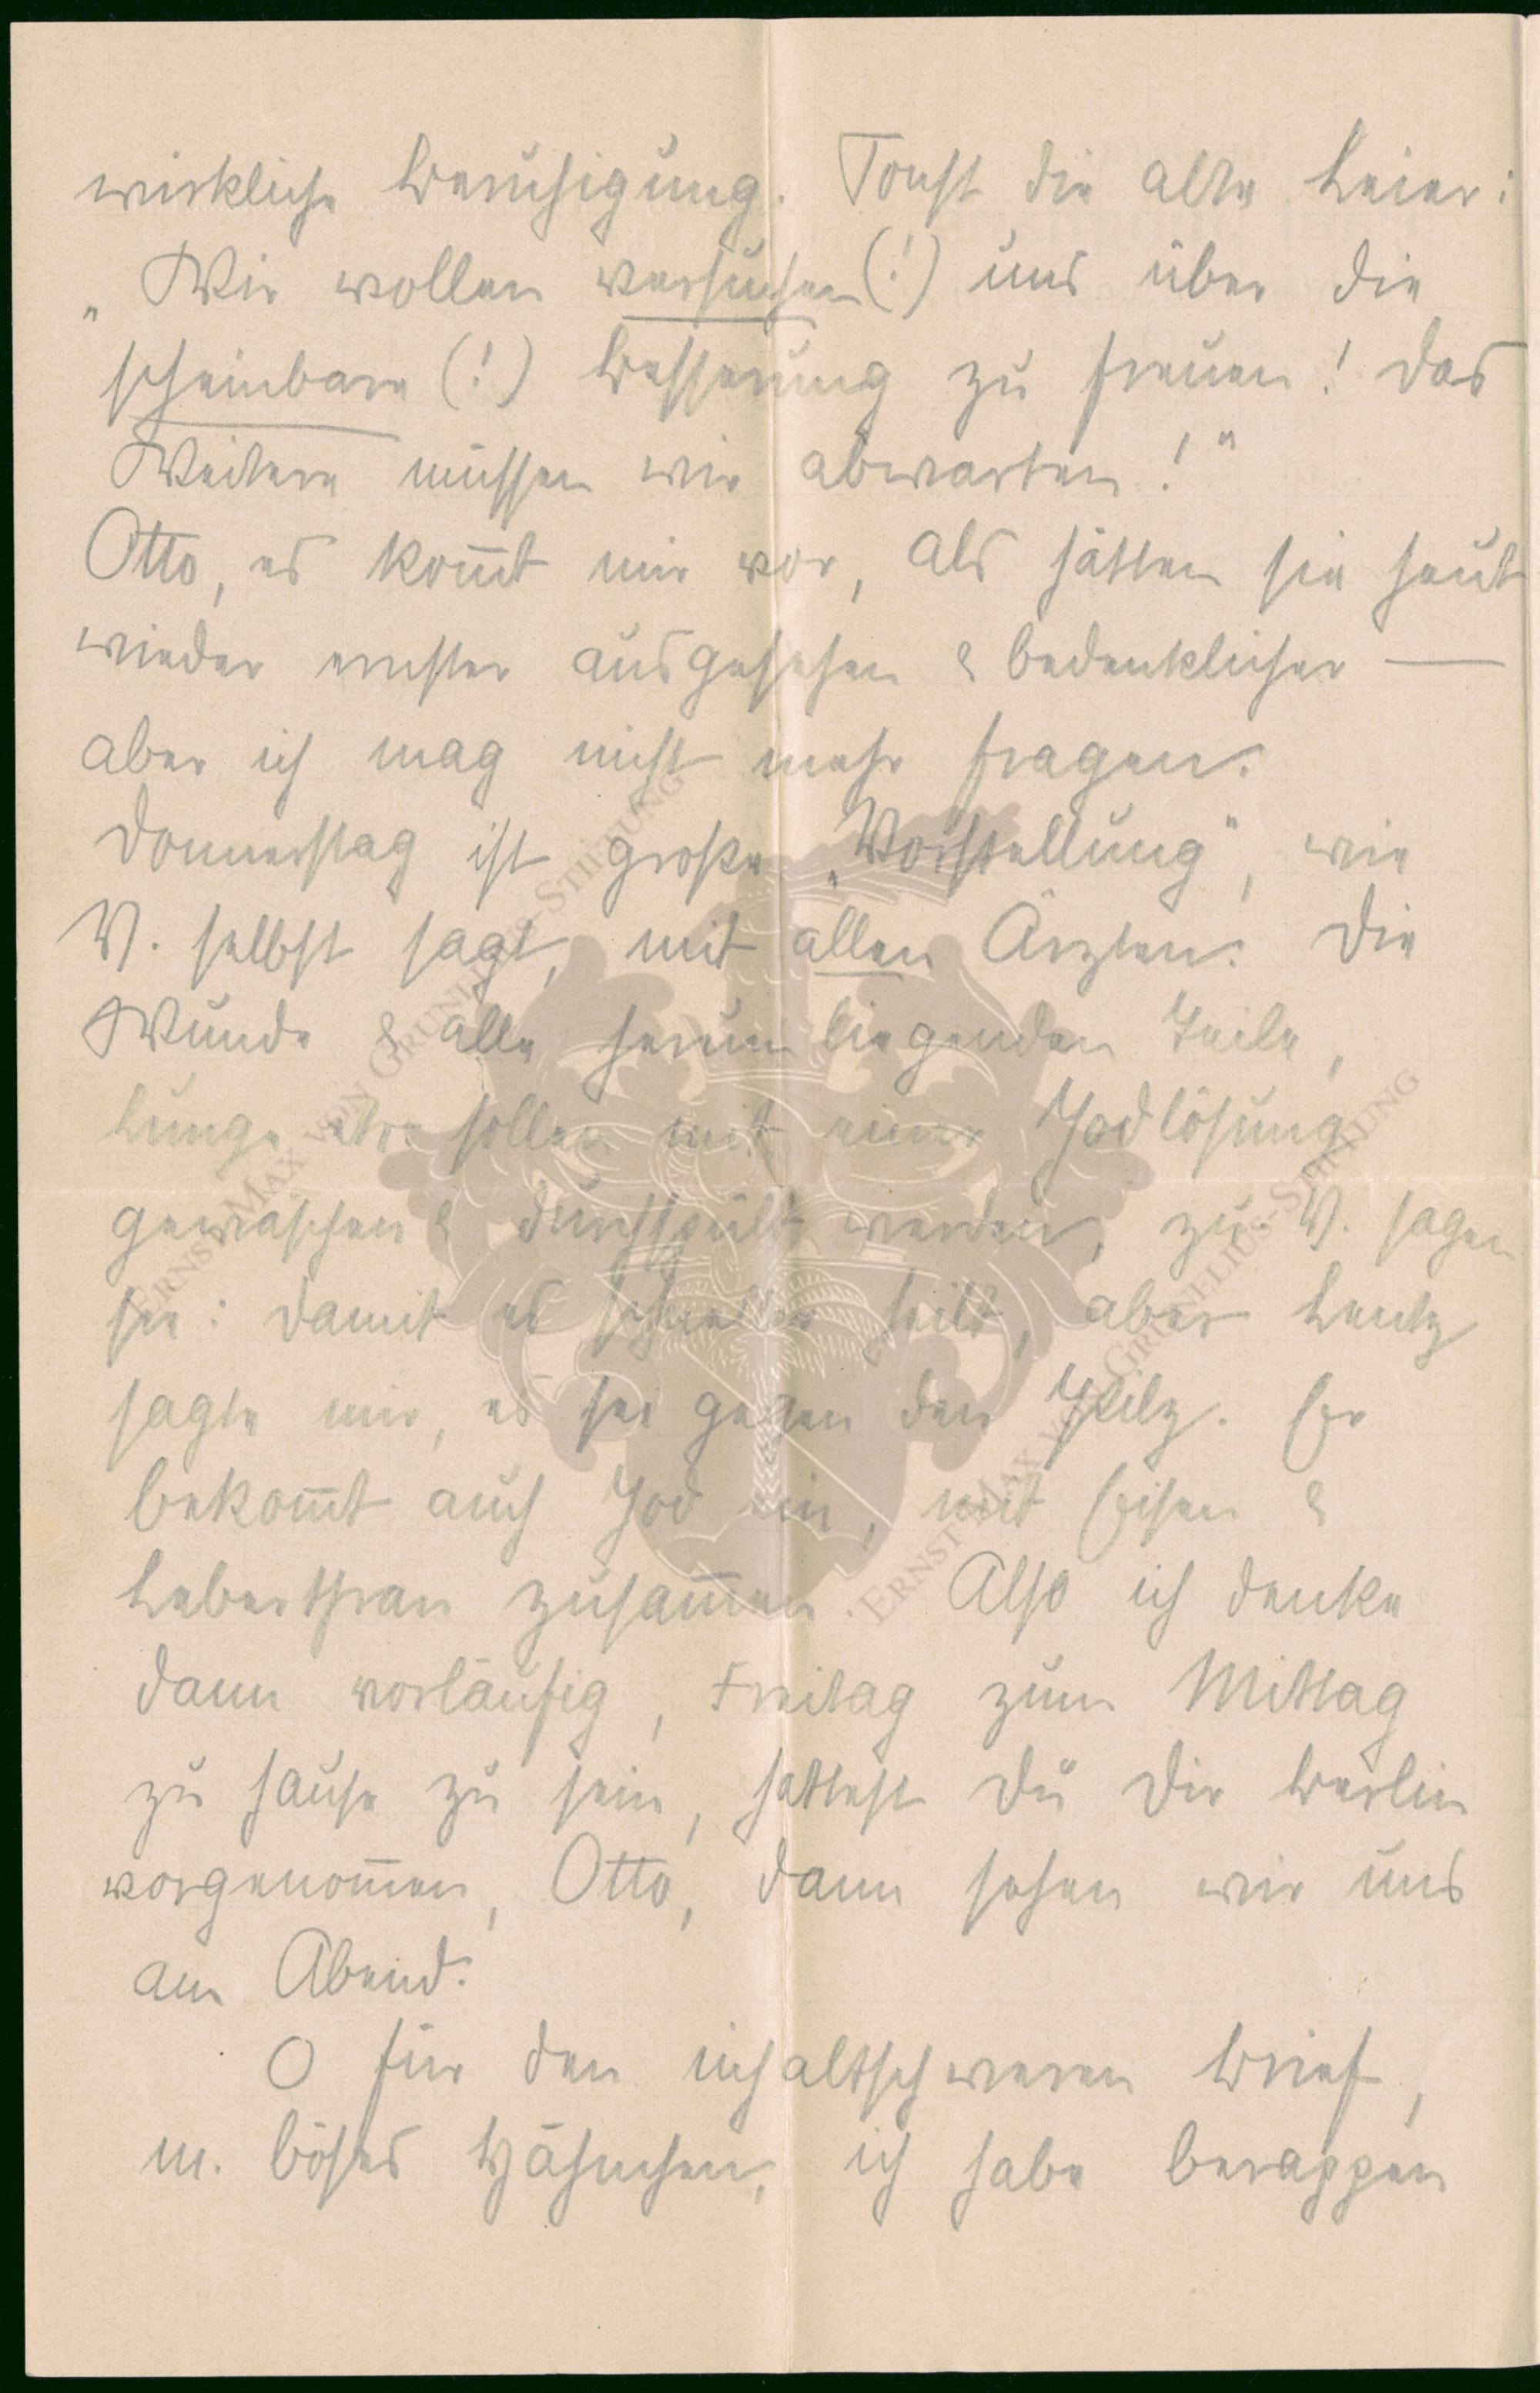 wirkliche Beruhigung. Sonst die alte Leier:
„Wir wollen versuchen (!) uns über die
scheinbare (!) Besserung zu freuen! Das
Weitere müssen wir abwarten!"
Otto, es kom̅t mir vor, als hätten sie heut
wieder ernster ausgesehen & bedenklicher —
aber ich mag nicht mehr fragen.
Donnerstag ist große „Vorstellung", wie
V. selbst sagt, mit allen Ärzten. Die
Wunde & alle herum liegenden Teile,
Lunge etc. sollen mit einer Jodlösung
gewaschen & durchspült werden, zu V. sagen
sie: damit es schneller heilt, aber Lentz
sagte mir, es sei gegen den Pilz. Er
bekom̅t auch Jod ein, mit Eisen &
Leberthran zusam̅en. Also ich denke
dann vorläufig, Freitag zum Mittag
zu Hause zu sein, hättest Du Dir Berlin
vorgenom̅en, Otto, dann sehen wir uns
am Abend.
O für den inhaltschweren Brief,
m. böses Hähnchen, ich habe berappen
ERNST MAX VON GRUNELIUS-STIFTUNG
ERNST MAX VON GRUNELIUS-STIFTUNG